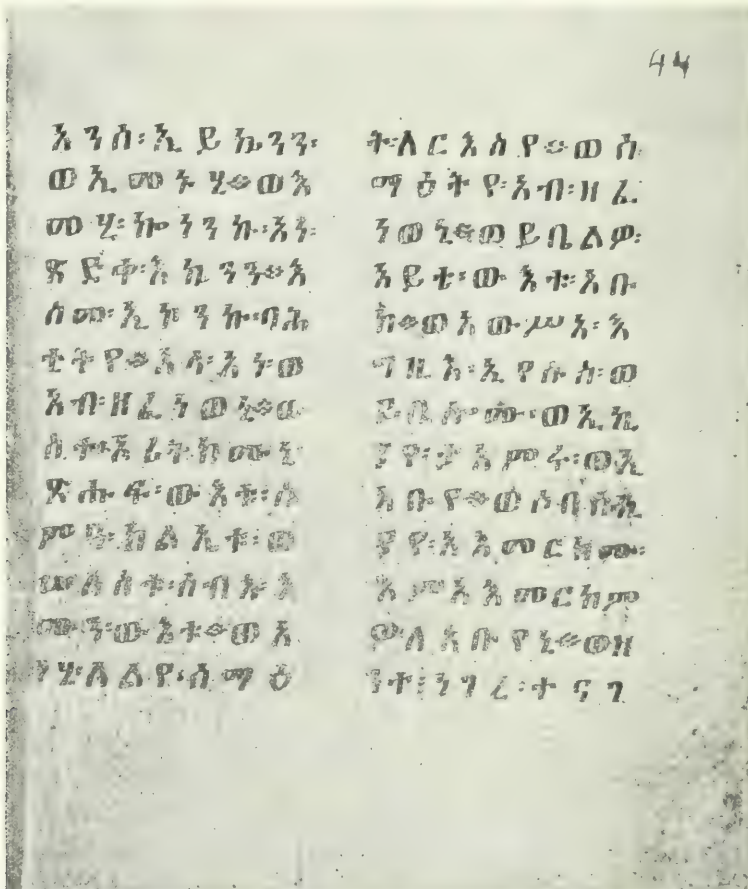 44
አንሰ፡ኢይኴንን፡
ወኢመኑሂ።ወእ
መሂ፡ኰነንኩ፡አነ፡
ጽድቀ፡እኴንን።እ
ስመ፡ኢኮንኩ፡ባሕ
ቲትየ።አላ፡አነ፡ወ
አብ፡ዘፈነወኒ።ው
ስተ፡ኦሪትክሙኒ፡
ጽሑፍ፡ውእቱ፡ስ
ምዓ፡ክልኤቱ፡ወ
ሠለስቱ፡ሰብእ፡እ
ሙን፡ውእቱ።ወአ
ንሂ፡ለልየ፡ሰማዕ
ት፡ለርእስየ።ወሰ
ማዕትየ፡አብ፡ዘፈ
ነወኒ።ወይቤልዎ፡
አይቴ፡ውእቱ፡አቡ
ከ።ወአውሥአ፡እ
ግዚእ፡ኢየሱስ፡ወ
ይቤሎሙ፡ወኢኪ
ያየ፡ታአምሩ፡ወኢ
አቡየ።ወሶበሰኪ
ያየ፡አእመርክሙ፡
እምአእመርክም
ዎ፡ለአቡየኒ።ወዘ
ንተ፡ነገረ፡ተናገ